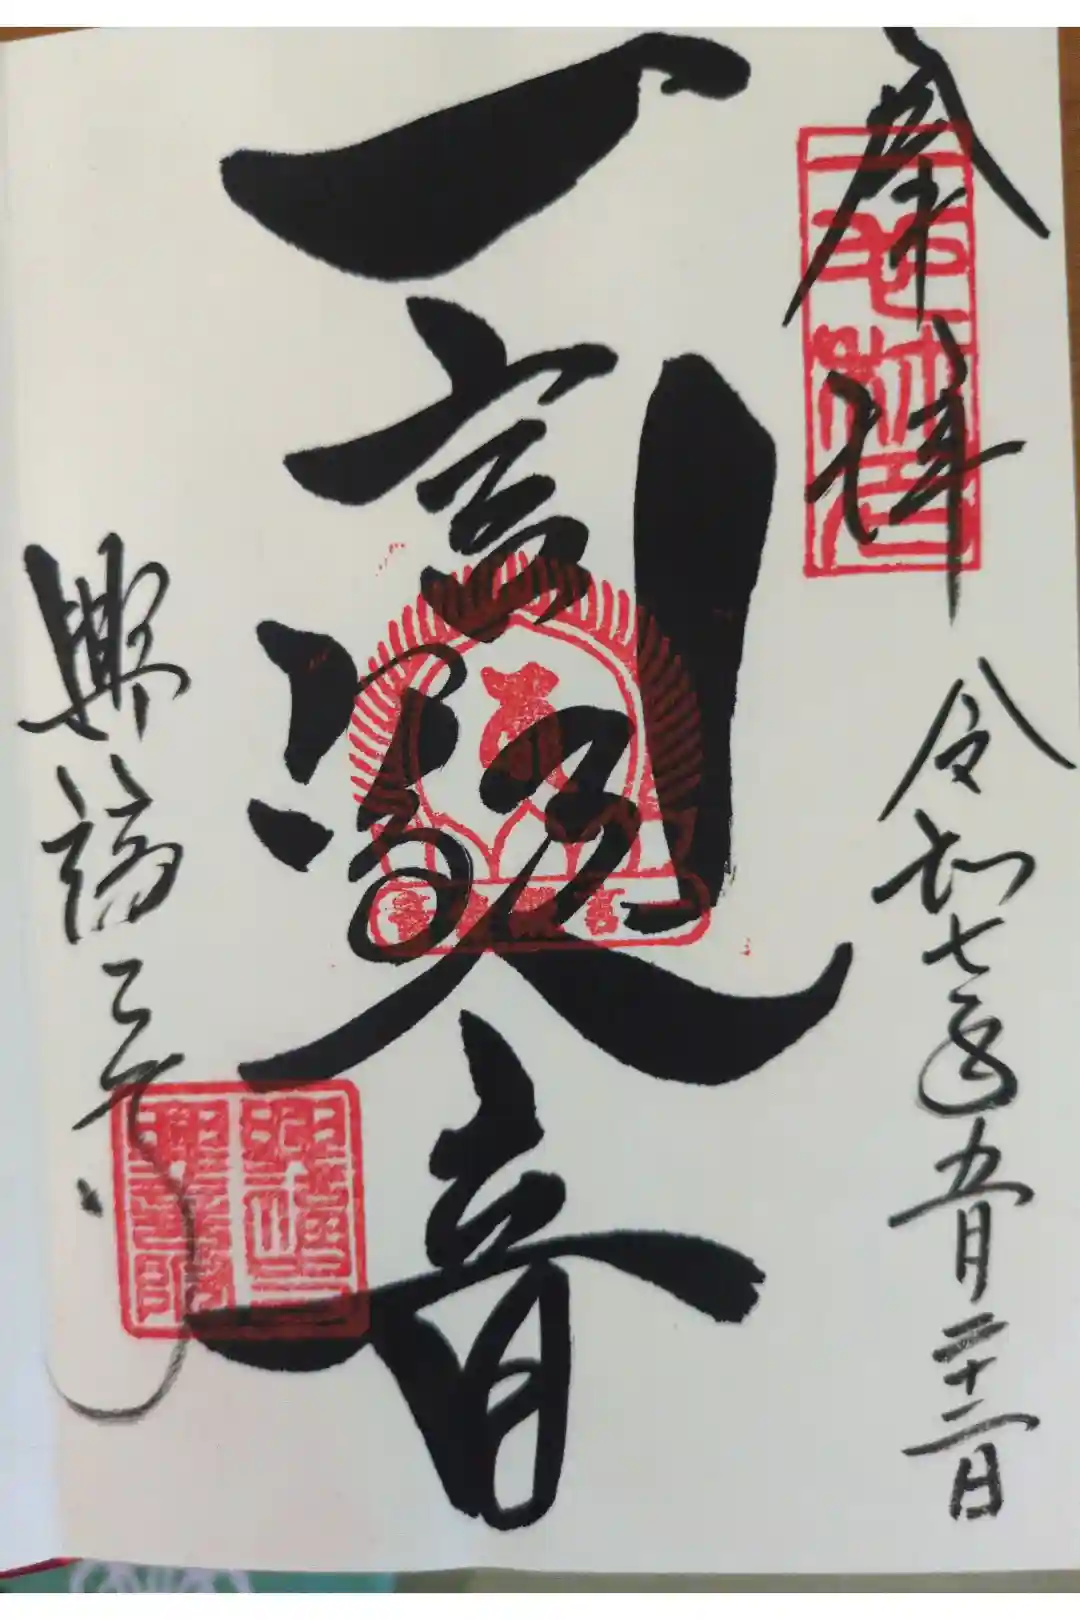 奉拝 令和七年五月二十二日
一言観音
興福寺